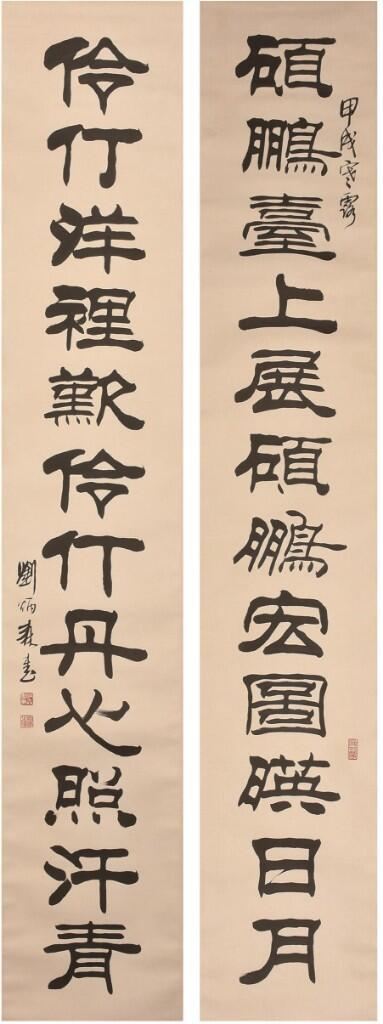 碩鵬臺上展碩鵬宏圖暎日月
甲戌寒露
伶仃洋裡歎伶仃丹心照汗青
劉炳森書